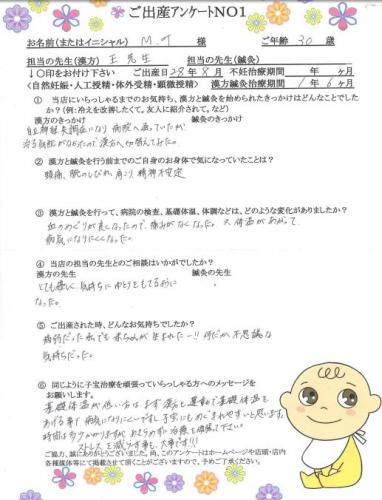 ご出産アンケートNO1
お名前(またはイニシャル) M.T 様 ご年齢 30 歳
担当の先生(漢方) 王先生 担当の先生(鍼灸)
↓〇印をお付け下さい ご出産日 28年 8月 不妊治療期間 年 ヶ月
(自然妊娠・人工授精・体外受精・顕微授精) 漢方鍼灸治療期間 1年 6ヶ月
① 当店にいらっしゃるまでのお気持ち、漢方と鍼灸を始められたきっかけはどんなことでした
か?(例:冷えを改善したくて。友人に紹介されて。など)
漢方のきっかけ 鍼灸のきっかけ
自律神経失調症になり 病院へ通っていたが
治る気配がなかったので漢方へ切替えてみた。
② 漢方と鍼灸を行う前までのご自身のお身体で気になっていたことは?
頭痛、腕のしびれ、肩こり、精神不安定
③ 漢方と鍼灸を行って、病院の検査、基礎体温、体調などは、どのような変化がありましたか?
血のめぐりが良くなったので、痛みがなくなった。又、体温があがって、
病気になりにくくなった。
④ 当店の担当の先生とのご相談はいかがでしたか?
漢方の先生 鍼灸の先生
とても優しく、気持ちにゆとりをもてるように
なった。
⑤ ご出産された時、どんなお気持ちでしたか?
病弱だった私でも赤ちゃんが生まれたー!!何だか不思議な
気持ちだった。
⑥ 同じように子宝治療を頑張っていらっしゃる方へのメッセージを
お願いします。
基礎体温が低い方はまず漢方と運動で基礎体温を
あげる事で、病気になりにくいですし、子宝にもめぐまれやすいと思います。
時間は多少かかりますが、あきらめずに治療を頑張って下さい。
ストレスを減らす事も、大事です!!!
ご協力、誠にありがとうございました。尚、このアンケートはホームページや店頭・店内
各種媒体等にて掲載させて頂くことがございますので、予めご了承ください。